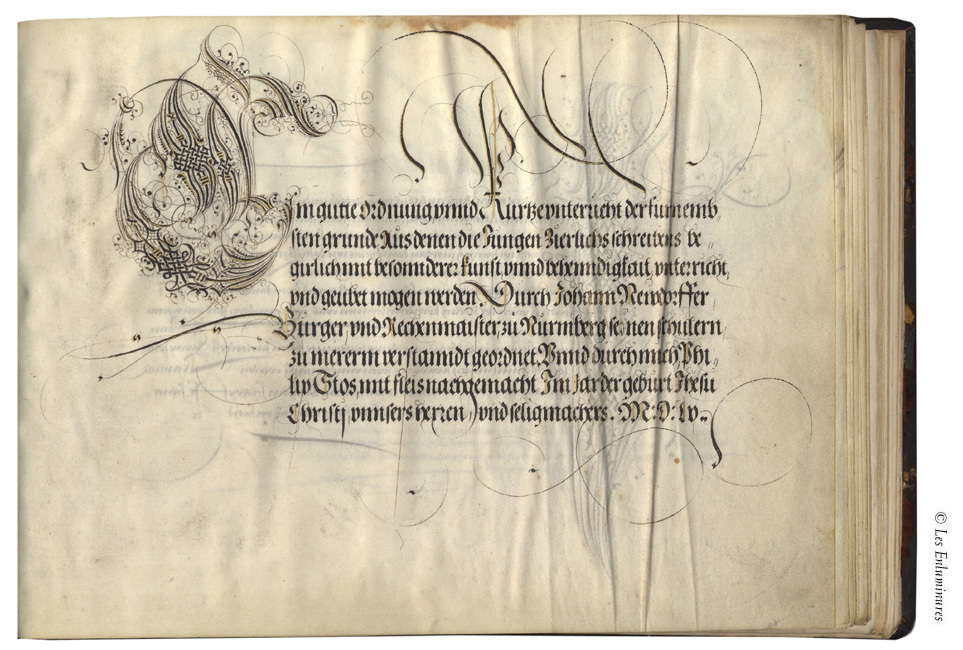 Ein gutte Ordnung vnnd Kurtze vnterricht der furnemb
sten grunde Aus denen die Jungen Zierlichs schreibens be„
girlich mit besonnderer kunst vnnd behenndigkait, vnterricht,
vnd geubet mogen werden. Durch Johann Newdorffer
Burger vnd Rechenmaister zu Nurmberg seinen schulern
zu mererm verstanndt geordnet. Vnnd durch mich Phi„
lip Stos mit fleis nachgemacht Im Jar der geburt Jhesu
Christj vnnsers herren vnd seligmachers. M: D: Lv.
© Les Enluminures